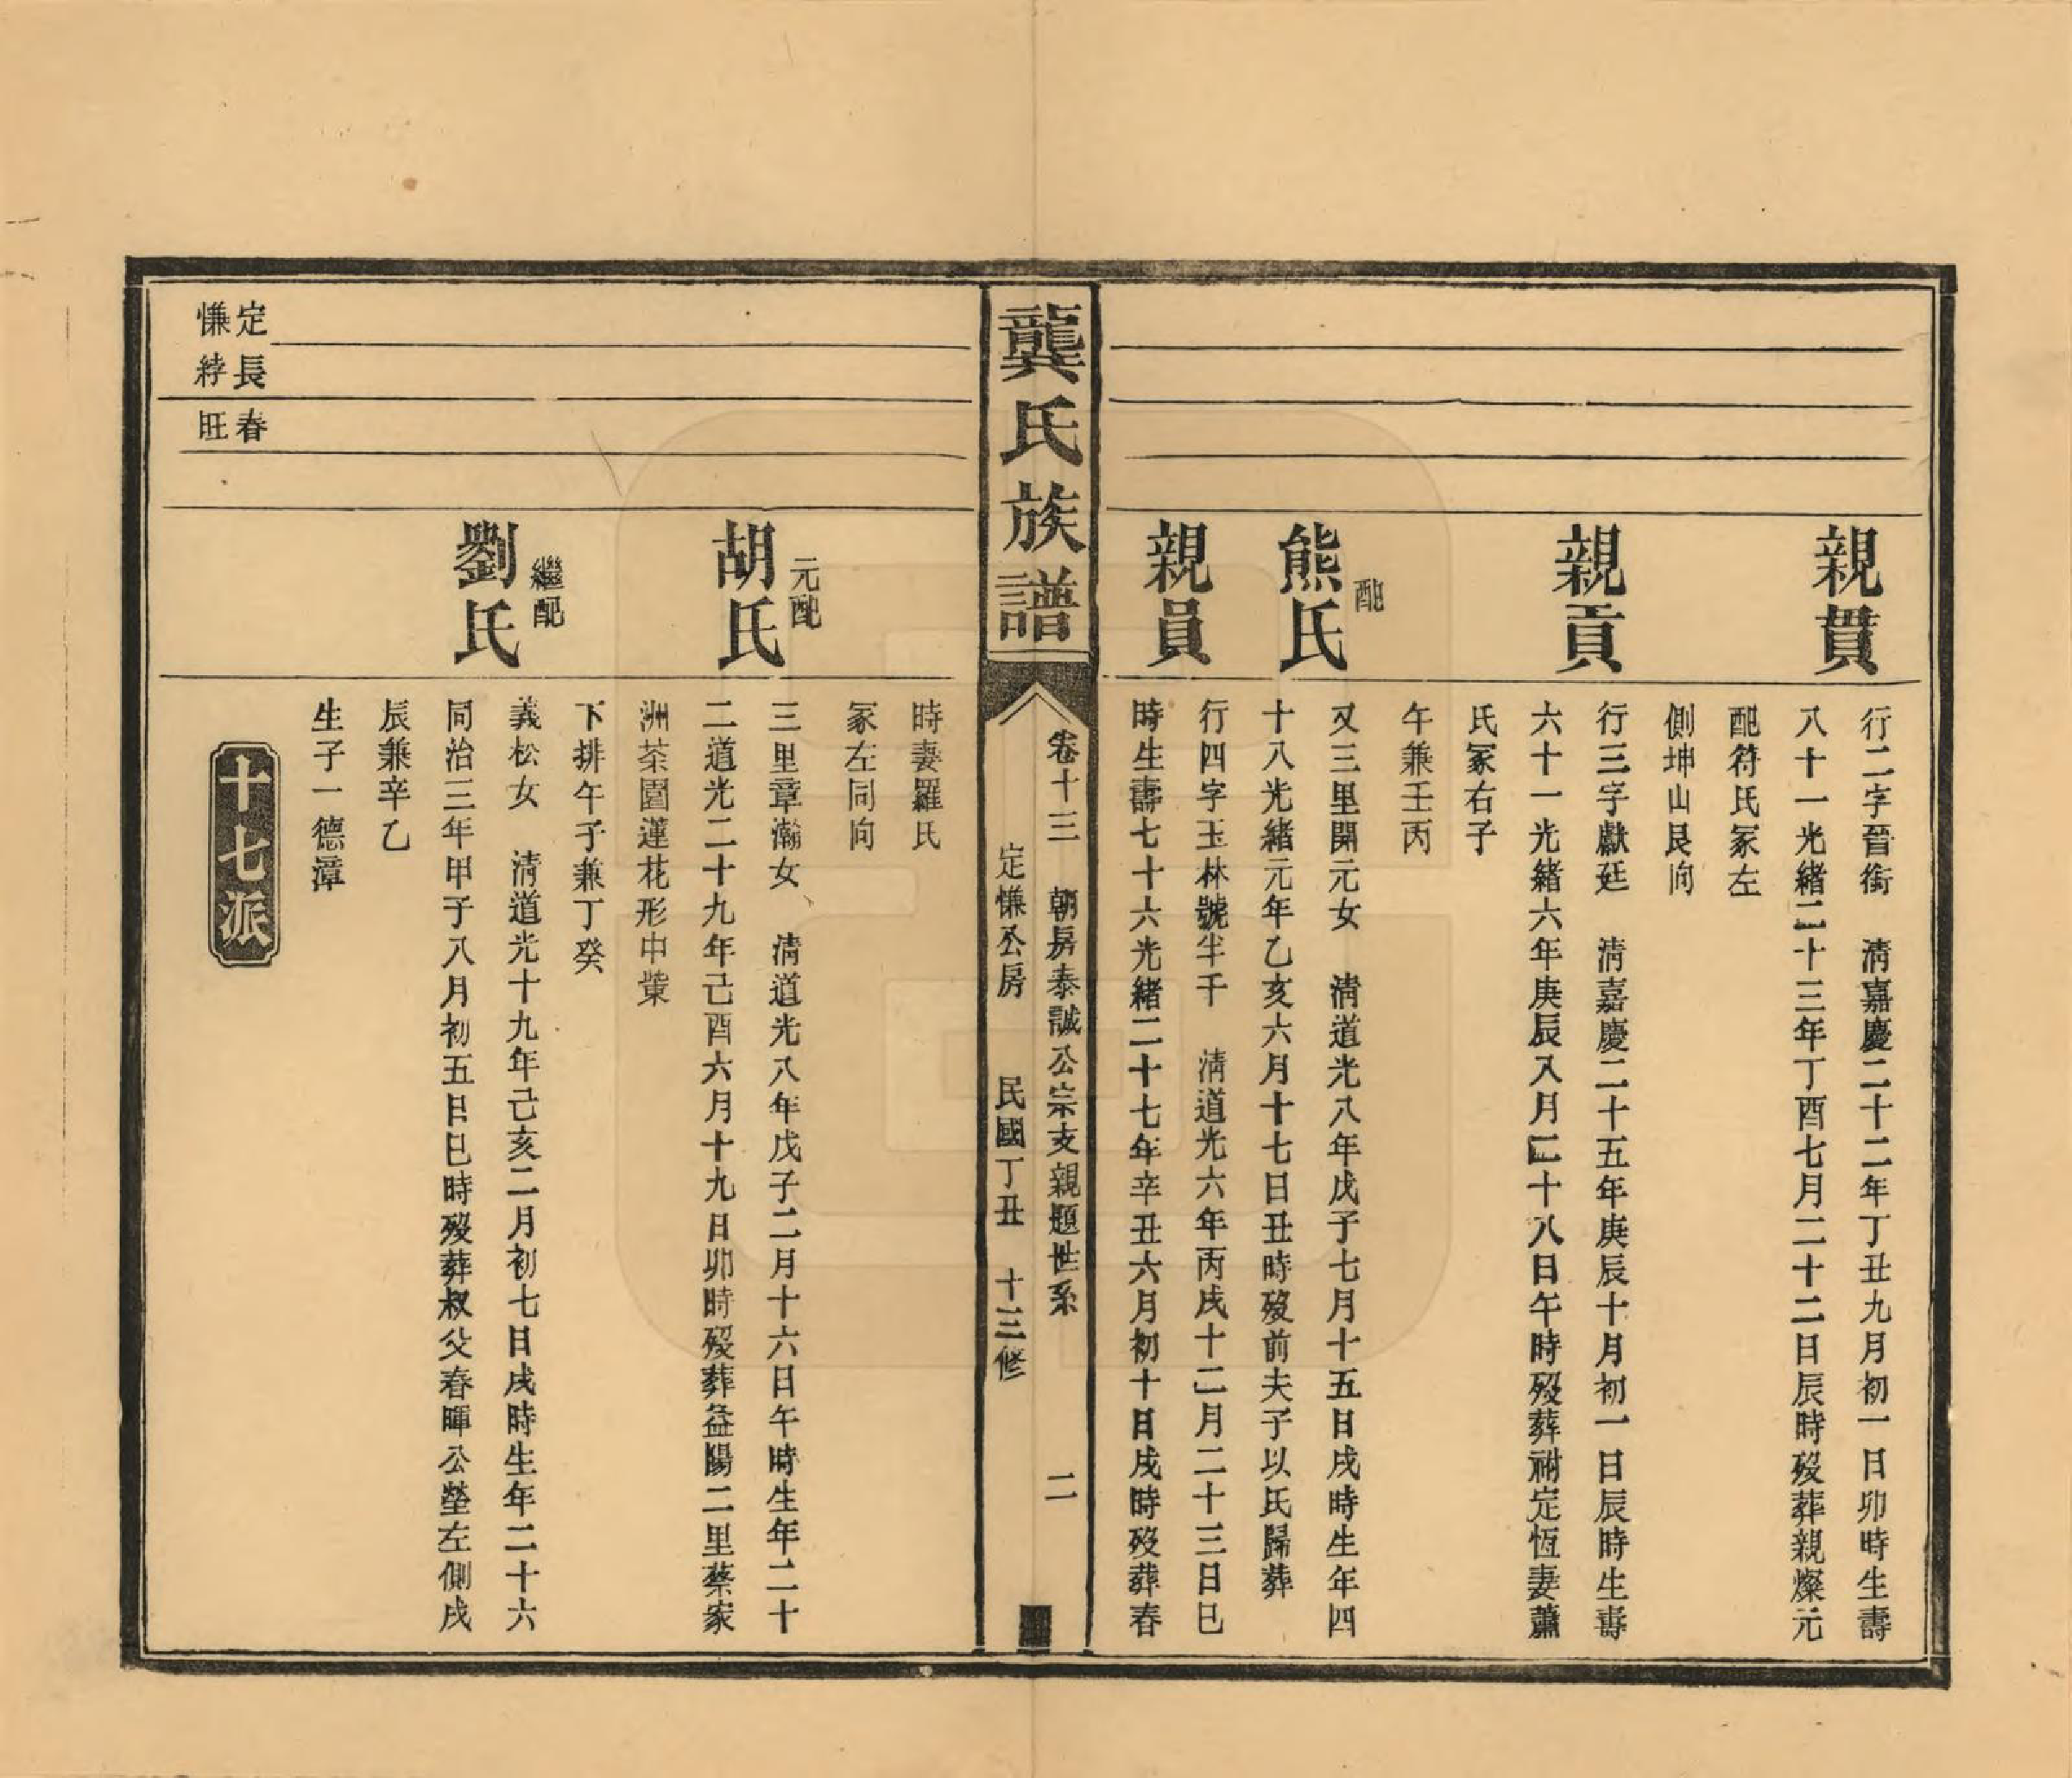 親貫
行二字晉銜　清嘉慶二十二年丁丑九月初一日卯時生壽
八十一光緒二十三年丁酉七月二十二日辰時歿葬親燦元
配符氏冢左
側坤山艮向
親貢
行三字獻廷　清嘉慶二十五年庚辰十月初一日辰時生壽
六十一光緒六年庚辰八月二十八日午時歿葬祔定恆妻蕭
氏冢右子
午兼壬丙
配
熊氏
又三里開元女　清道光八年戊子七月十五日戌時生年四
十八光緒元年乙亥六月十七日丑時歿前夫子以氏歸葬
親員
行四字玉林號半千　清道光六年丙戌十二月二十三日巳
時生壽七十六光緒二十七年辛丑六月初十日戌時歿葬春
龔氏族譜
卷十三　朝房泰誠公宗支親題世系　二
定慊公房　民國丁丑　十三修
時妻羅氏
冢左同向
元配
胡氏
三里章瀚女　清道光八年戊子二月十六日午時生年二十
二道光二十九年己酉六月十九日卯時歿葬益陽二里蔡家
洲茶園蓮花形中業
下排午子兼丁癸
繼配
劉氏
義松女　清道光十九年己亥二月初七日戌時生年二十六
同治三年甲子八月初五日巳時歿葬叔父春暉公塋左側戌
辰兼辛乙
生子一德漳
定長春
慊綍旺
十七派